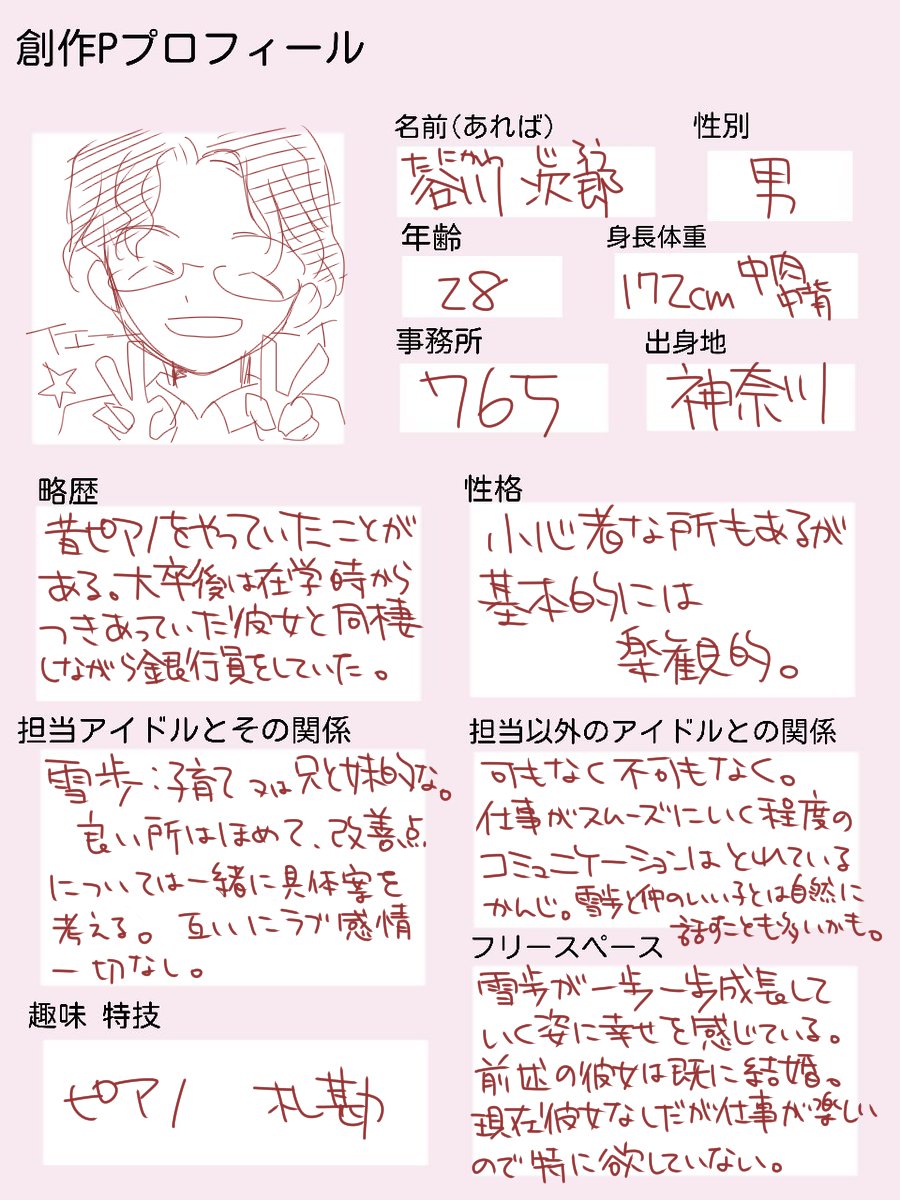 創作Pプロフィール
名前(あれば)
たにかわ じろう
谷川 次郎
性別
男
年齢
28
身長体重
172cm 中肉
中背
事務所
765
出身地
神奈川
略歴
昔ピアノをやっていたことが
ある。大卒後は在学時から
つきあっていた彼女と同棲
しながら銀行員をしていた。
性格
小心者な所もあるが
基本的には
楽観的。
担当アイドルとその関係
雪歩:子育て又は兄と妹的な。
良い所はほめて、改善点
については一緒に具体案を
考える。互いにラブ感情
一切なし。
担当以外のアイドルとの関係
可もなく不可もなく。
仕事がスムーズにいく程度の
コミュニケーションはとれている
かんじ。雪歩と仲のいい子とは自然に
話すことも多いかも。
趣味 特技
ピアノ 札勘
フリースペース
雪歩が一歩一歩成長して
いく姿に幸せを感じている。
前述の彼女は既に結婚。
現在彼女なしだが仕事が楽しい
ので特に欲していない。